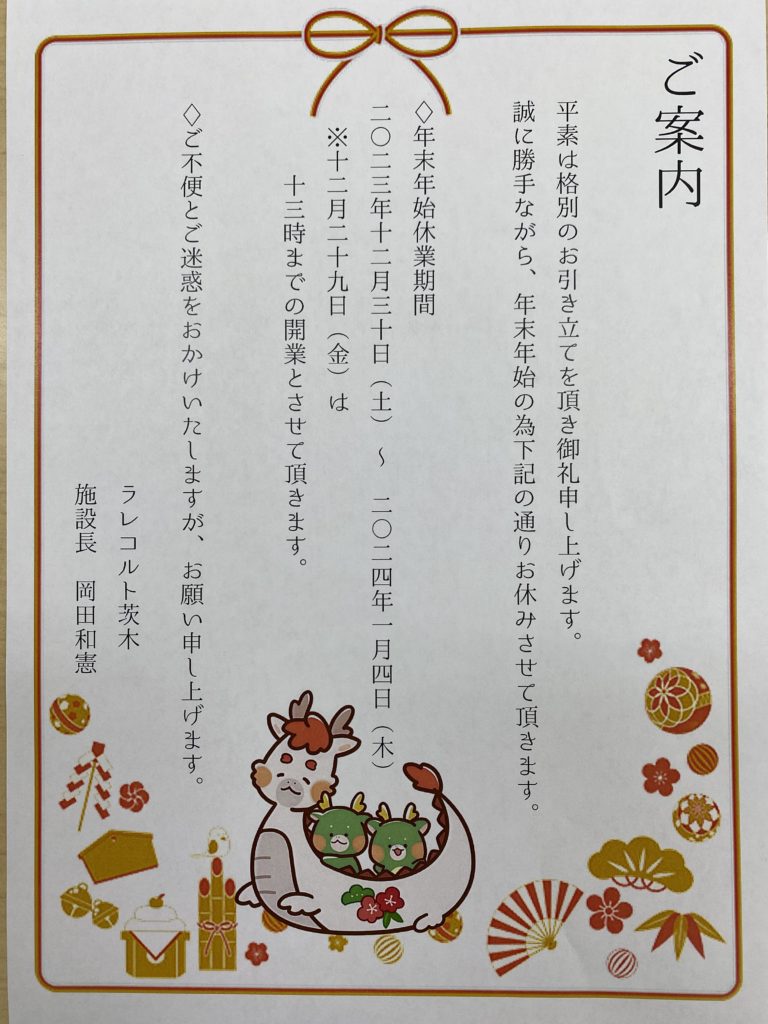 ご案内
平素は格別のお引き立てを頂き御礼申し上げます。
誠に勝手ながら、年末年始の為下記の通りお休みさせて頂きます。
◇年末年始休業期間
二〇二三年十二月三十日（土）　～　二〇二四年一月四日（木）
※十二月二十九日（金）は
十三時までの開業とさせて頂きます。
◇ご不便とご迷惑をおかけいたしますが、お願い申し上げます。
ラレコルト茨木
施設長　岡田和憲